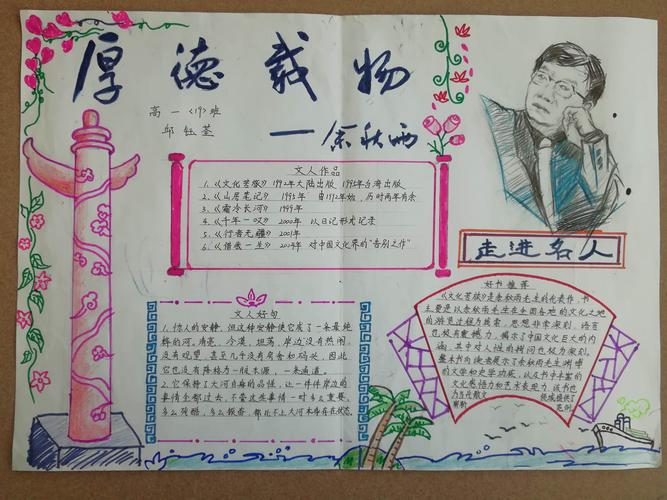 厚德载物
高一<19>班
邱钰荃
——余秋雨
文人作品
1.《文化苦旅》1992年大陆出版 1992年台湾出版
2.《山居笔记》1995年 自1992年始，历时两年有余
3.《霜冷长河》1999年
4.《千年一叹》2000年 以日记形式记录
5.《行者无疆》2001年
6.《借我一生》2004年 对中国文化界的"告别之作"
走进名人
文人好句
1.惊人的安静，但这种安静使它成了一条最纯
粹的河。清亮、冷漠、坦荡，岸边没有热闹，
没有观望，甚至几乎没有房舍和码头，因此
它也没有降格为一脉水源，一条通道。
2.它保持了大河自身的品性，让一件件岸边的
事情全都过去，不管这些事情一时多么重要，
多么残酷，多么振奋，都比不上大河本身存在状态
好书推荐
《文化苦旅》是余秋雨先生的代表作，书
主要是以余秋雨先生在全国各地的文化之地
的游览过程为线索，思想非常深刻，语言
也极有震撼力，揭示了中国文化巨大的内
涵，且令对人性的拷问也极为深刻，
整本书向读者展示了余秋雨先生渊博
的文学和史学功底，以及书中丰富的
文化感悟力和艺术表现力，该书也
为当代散文
领域提供了
崭新
范例。